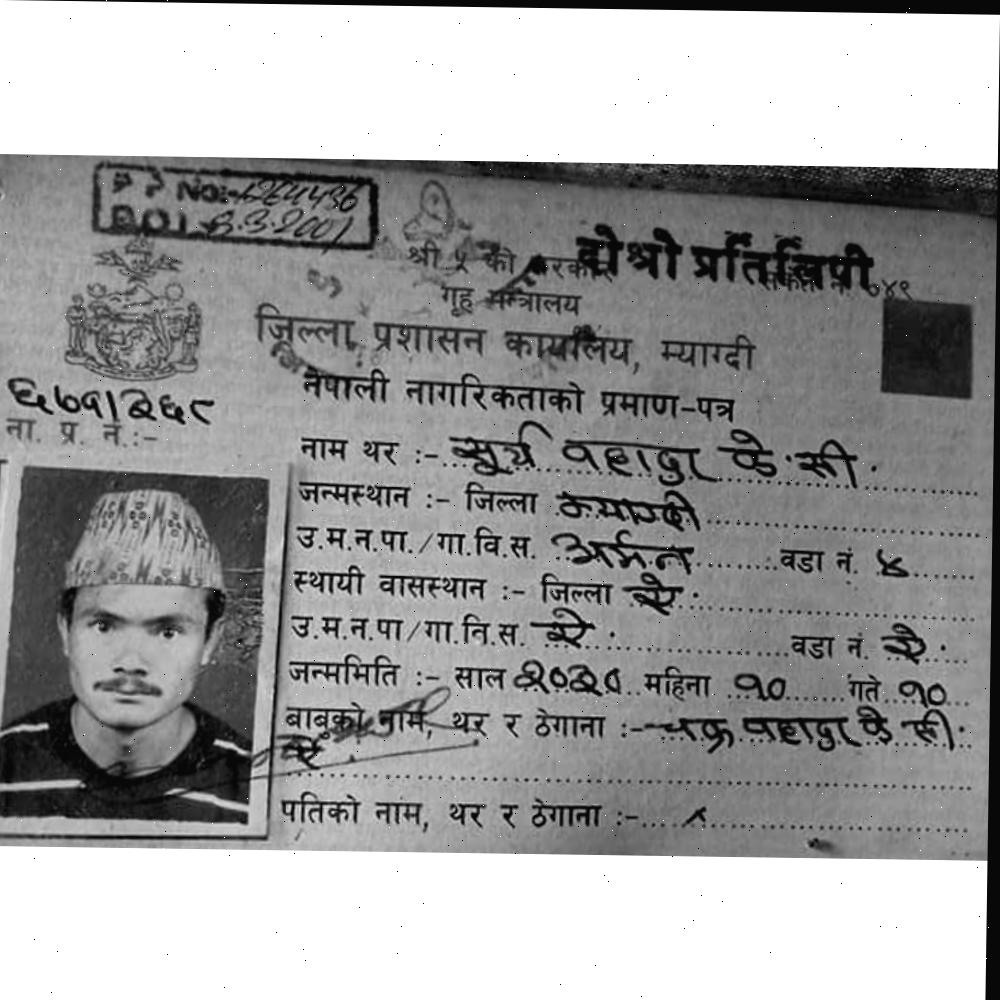 P P No:- 1264436
D.O.I. 8.3.2001
श्री ५ को सरकार
दोश्रो प्रतिलिपी
गृह मन्त्रालय
जिल्ला प्रशासन कार्यालय, म्याग्दी
नेपाली नागरिकताको प्रमाण-पत्र
६७१/२६८
ना. प्र. नं.:-
नाम थर :- सुर्य वहादुर के.सी.
जन्मस्थान :- जिल्ला म्याग्दी
उ.म.न.पा./गा.वि.स. अर्मन वडा नं. ४
स्थायी वासस्थान :- जिल्ला ऐ.
उ.म.न.पा/गा.वि.स. ऐ. वडा नं. ऐ.
जन्ममिति :- साल २०३० महिना १० गते १०
बाबुको नाम, थर र ठेगाना :- चक्र वहादुर के सी.
ऐ.
पतिको नाम, थर र ठेगाना :- ×